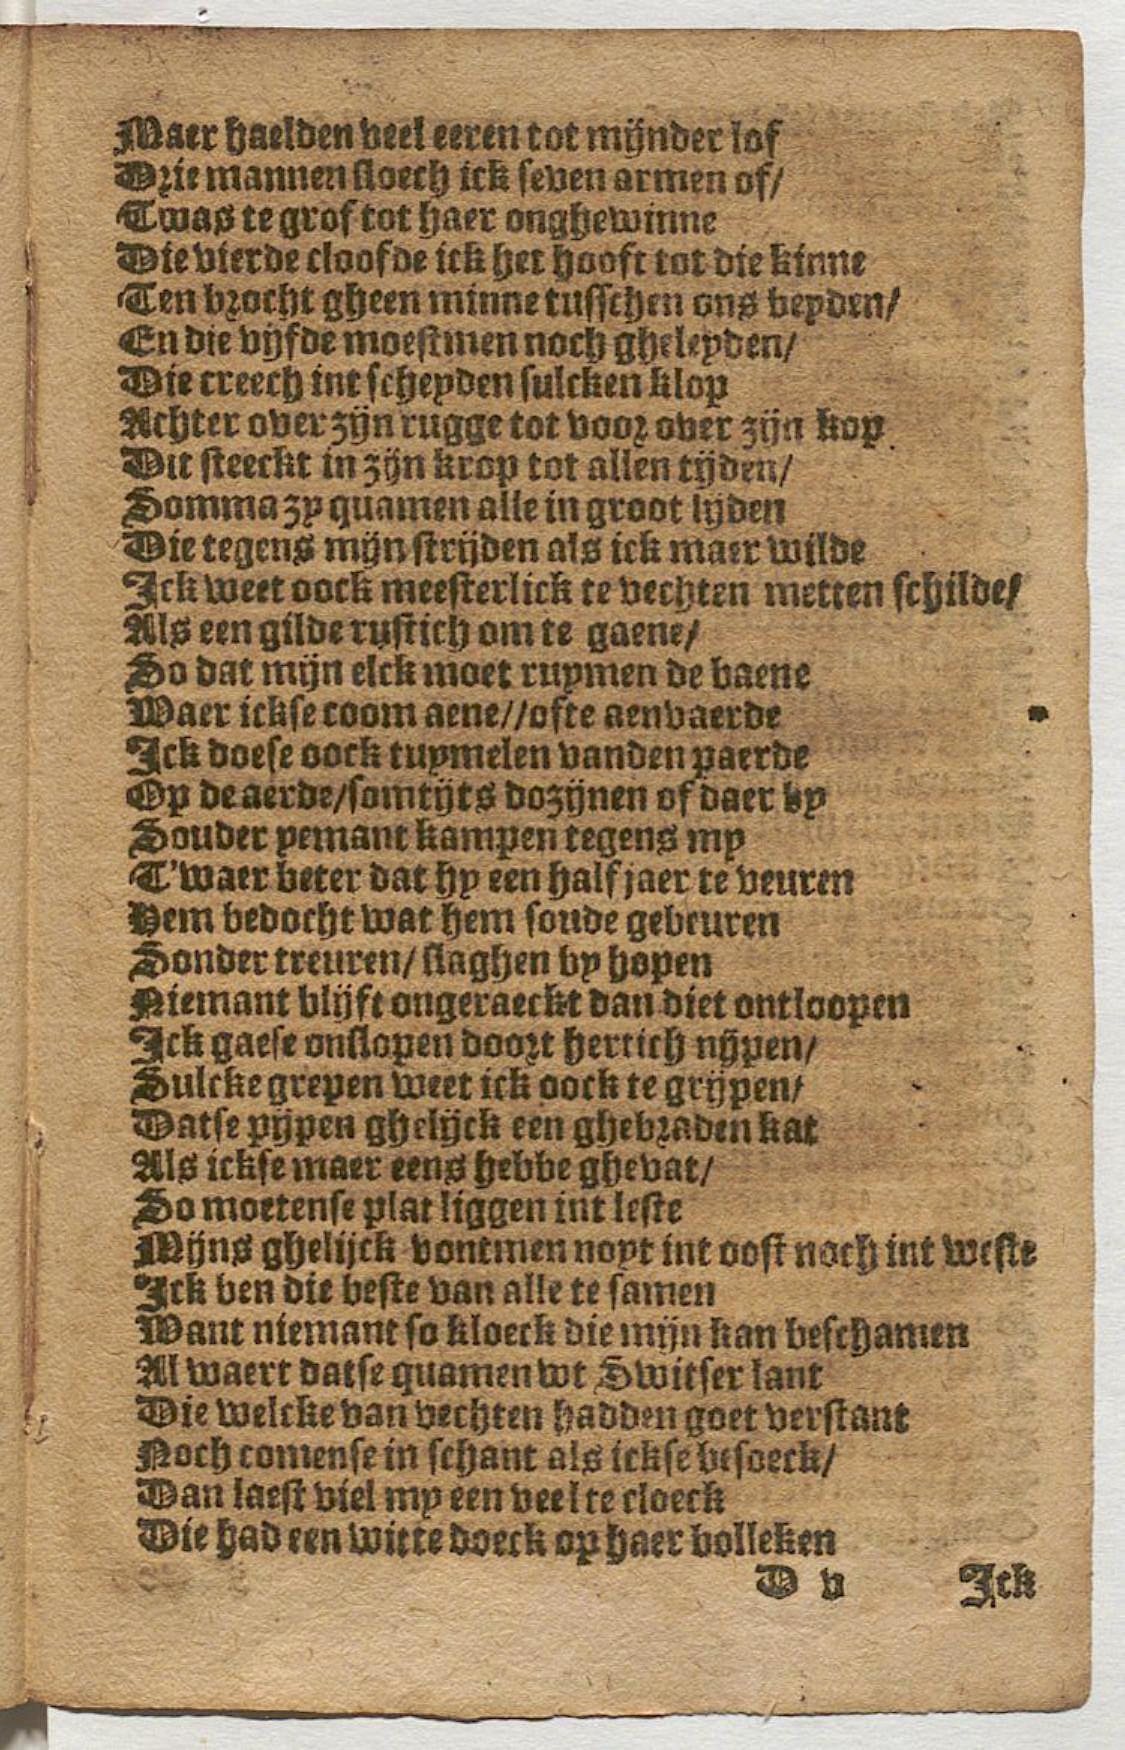 Maer haelden veel eeren tot mijnder lof
Drie mannen sloech ick seven armen of/
Twas te grof tot haer onghewinne
Die vierde cloofde ick het hooft tot die kinne
Ten brocht gheen minne tusschen ons beyden/
En die vijfde moestmen noch gheleyden/
Die creech int scheyden sulcken klop
Achter over zijn rugge tot voor over zijn kop
Dit steeckt in zijn krop tot allen tijden/
Somma zy quamen alle in groot lijden
Die tegens mijn strijden als ick maer wilde
Ick weet oock meesterlick te vechten metten schilde/
Als een gilde rustich om te gaene/
So dat mijn elck moet ruymen de baene
Waer ickse coom aene//ofte aenvaerde
Ick doese oock tuymelen vanden paerde
Op de aerde/somtijts dozijnen of daer by
Souder yemant kampen tegens my
T'waer beter dat hy een half jaer te veuren
Hem bedocht wat hem soude gebeuren
Sonder treuren/ slaghen by hopen
Niemant blijft ongeraeckt dan diet ontloopen
Ick gaese onslopen doort hertich nijpen/
Sulcke grepen weet ick oock te grijpen/
Datse pijpen ghelijck een ghebraden kat
Als ickse maer eens hebbe ghevat/
So moetense plat liggen int leste
Mijns ghelijck vontmen noyt int oost noch int weste
Ick ben die beste van alle te samen
Want niemant so kloeck die mijn kan beschamen
Al waert datse quamen wt Switser lant
Die welcke van vechten hadden goet verstant
Noch comense in schant als ickse besoeck/
Dan laest viel my een veel te cloeck
Die had een witte doeck op haer bolleken
D v Ick